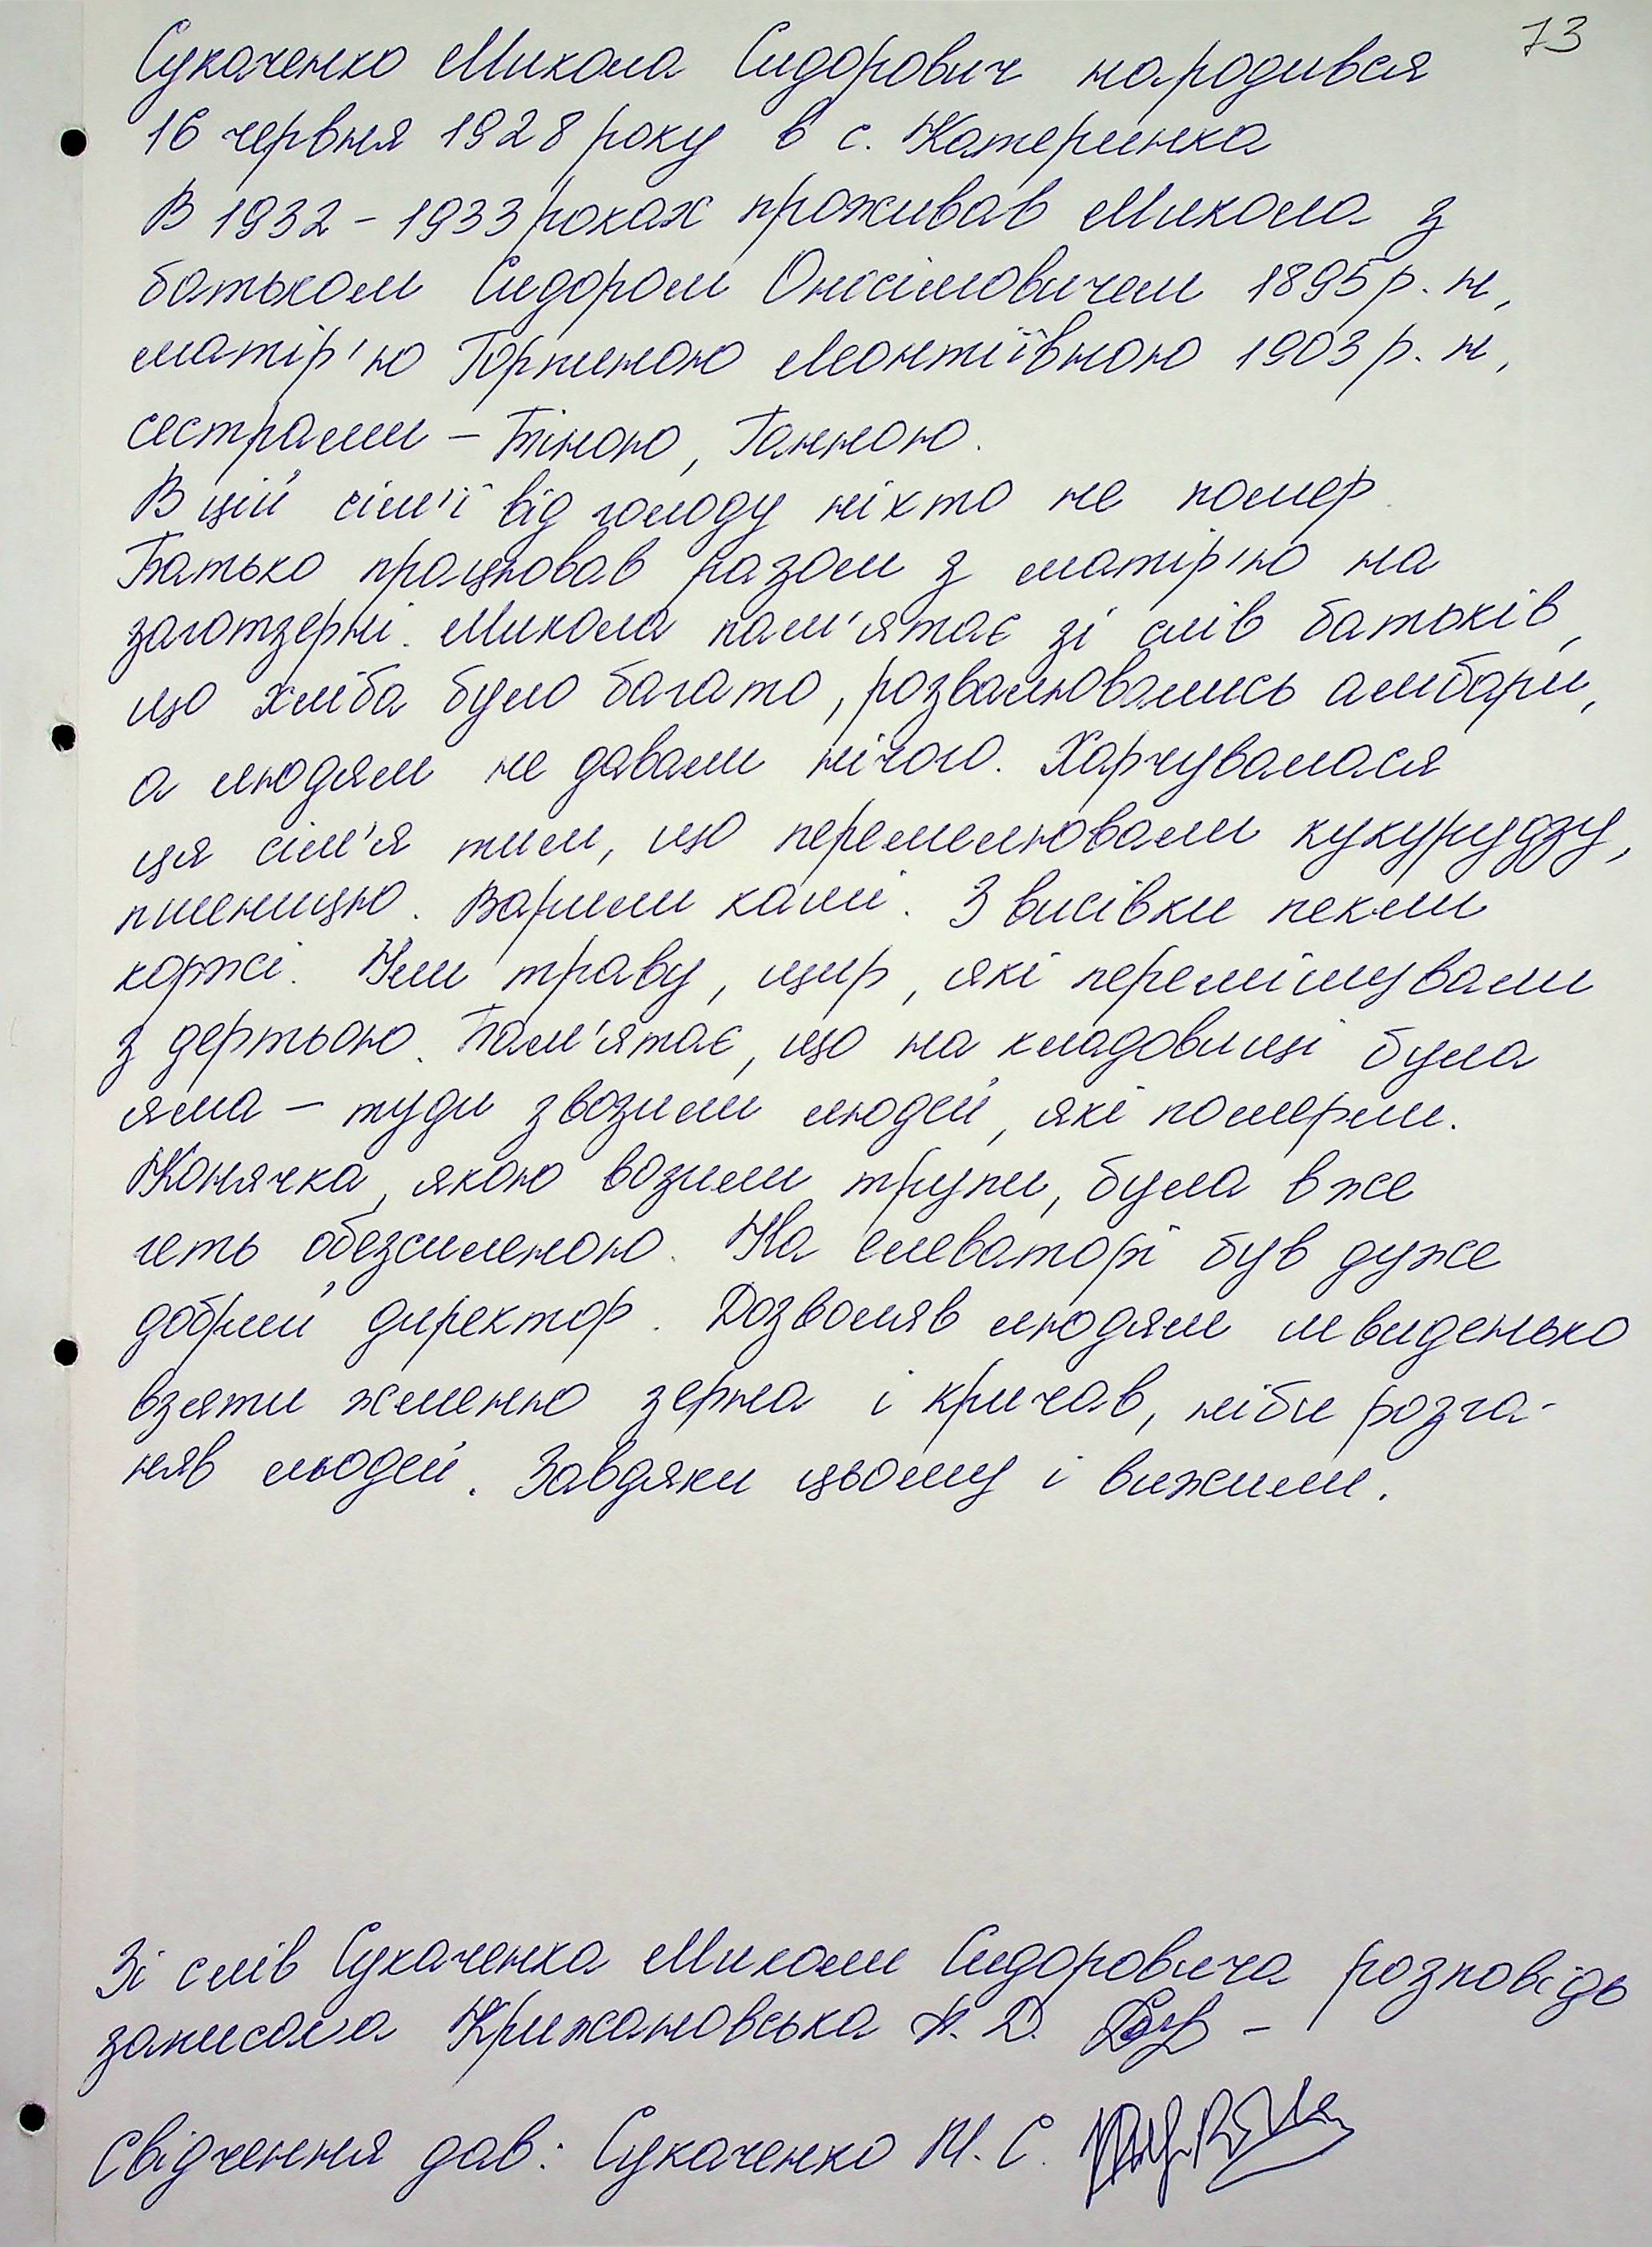 73
Сукаченко Микола Сидорович народився
16 червня 1928 року в с. Катеринка
В 1932 – 1933 роках проживав Микола з
батьком Сидором Онісімовичем 1895 р. н,
матір'ю Горпиною Леонтіївною 1903 р. н,
сестрами – Тіною, Ганною.
В цій сім'ї від голоду ніхто не помер.
Батько працював разом з матір'ю на
заготзерні. Микола пам'ятає зі слів батьків,
що хліба було багато, розвалювались амбари,
а людям не давали нічого. Харчувалася
ця сім'я тим, що перемелювали кукурудзу,
пшеницю. Варили каші. З висівки пекли
коржі. Їли траву, щир, які перемішували
з дертьою. Пам'ятає, що на кладовищі була
яма – туди звозили людей, які померли.
Конячка, якою возили трупи, була вже
геть обезсиленою. На елеваторі був дуже
добрий директор. Дозволяв людям швиденько
взяти жменю зерна і кричав, ніби розга-
няв людей. Завдяки цьому і вижили.
Зі слів Сукаченка Миколи Сидоровича розповідь
записала Крижановська Л. Д.
Свідчення дав: Сукаченко М. С.